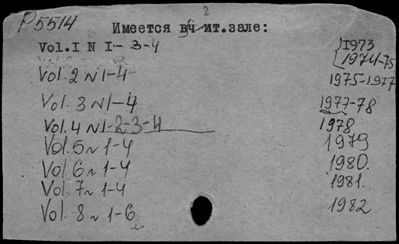 P5514
2
Имеется в чит.зале:
Vol.I N I-3-4 1973
1974-75
Vol.2 N 1-4 1975-1977
Vol.3 N 1-4 1977-78
Vol.4 N 1-2-3-4 1978
Vol.5 N 1-4 1979
Vol.6 N 1-4 1980.
Vol.7 N 1-4 1981.
Vol.8 N 1-6 1982